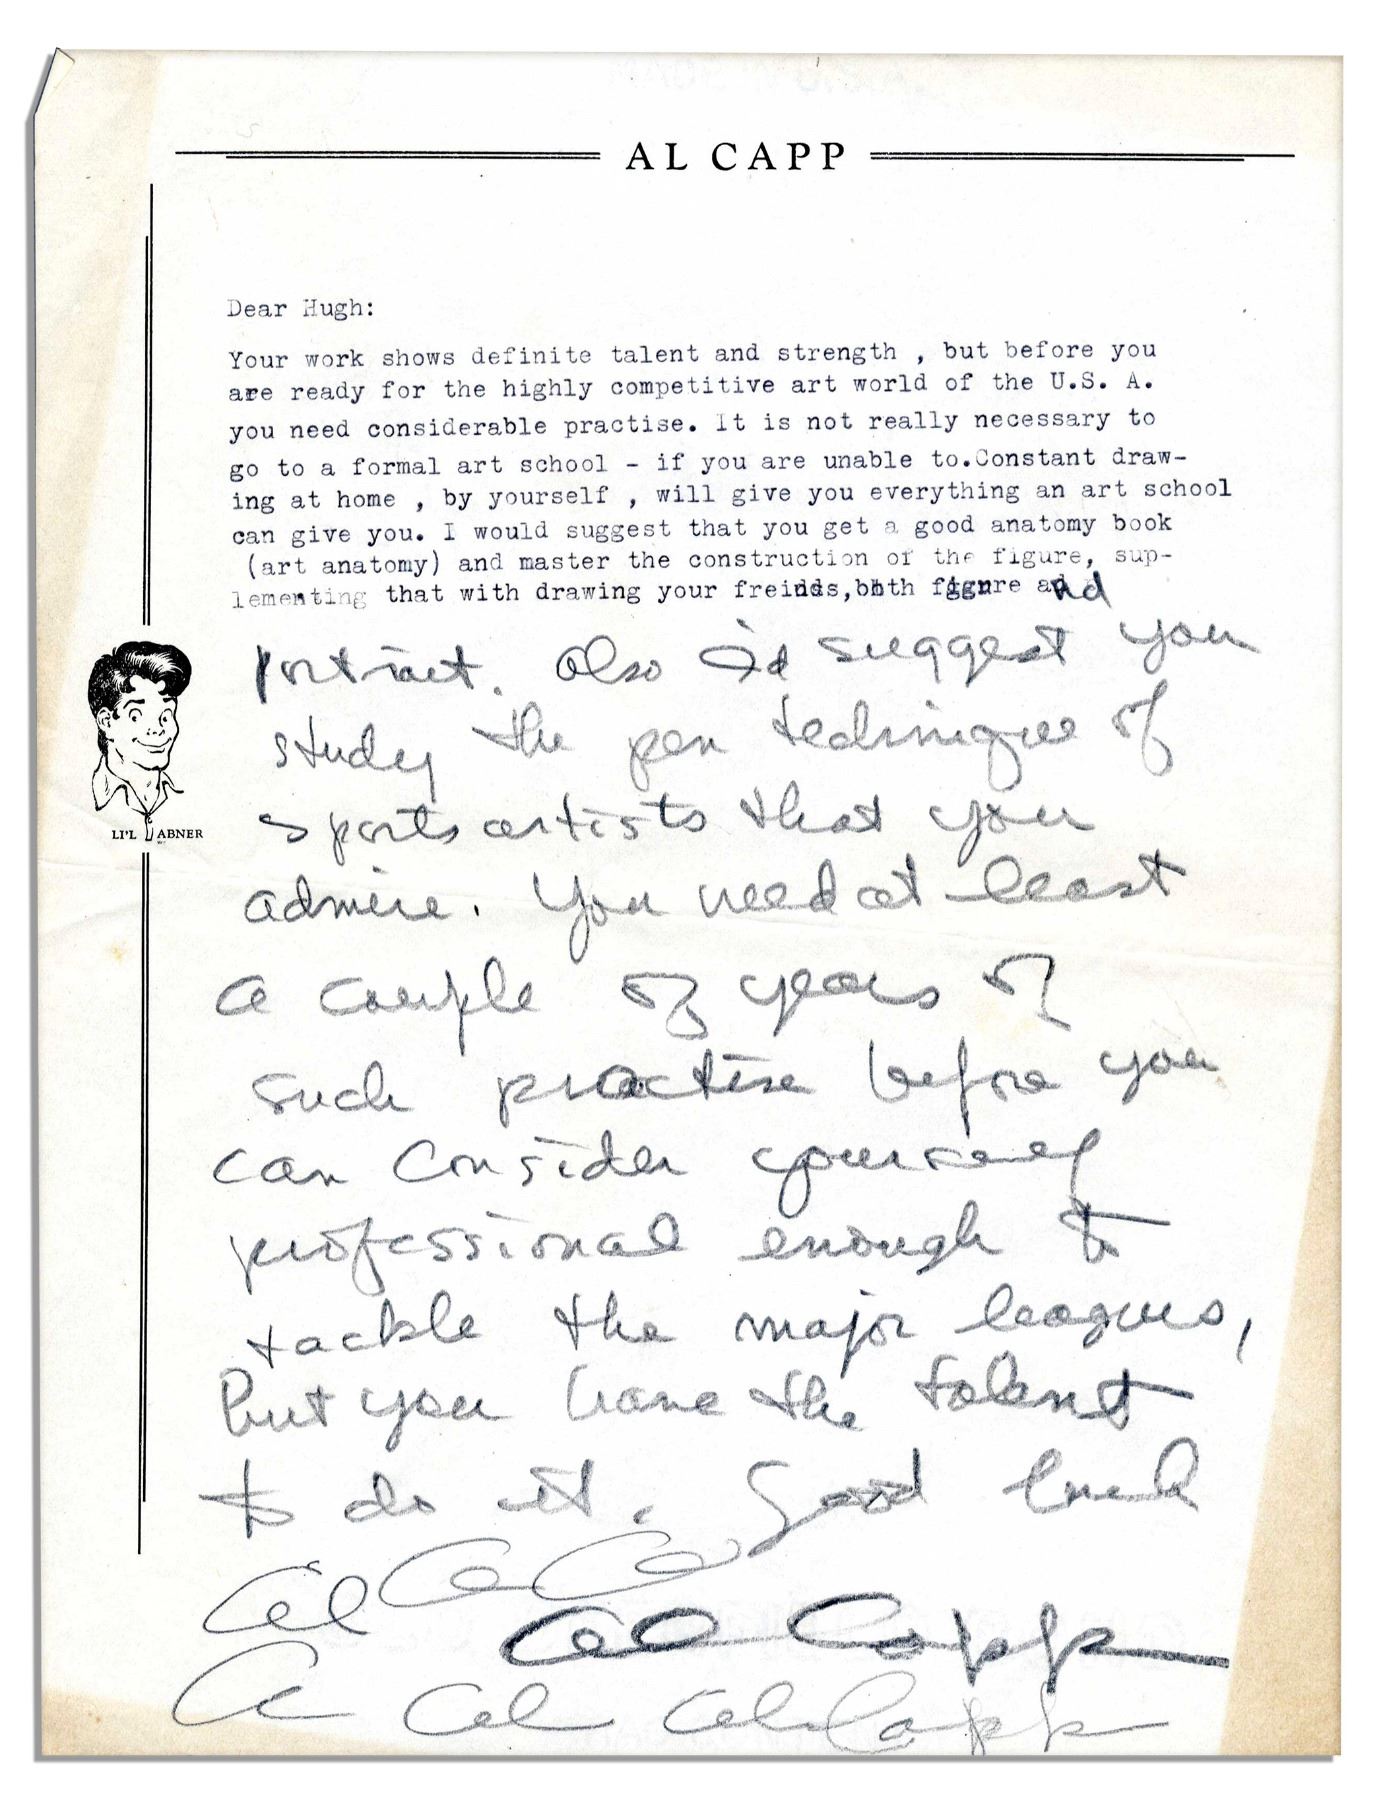 AL CAPP
Dear Hugh:
Your work shows definite talent and strength , but before you
are ready for the highly competitive art world of the U.S. A.
you need considerable practise. It is not really necessary to
go to a formal art school - if you are unable to.Constant draw-
ing at home , by yourself , will give you everything an art school
can give you. I would suggest that you get a good anatomy book
(art anatomy) and master the construction of the figure, sup-
lementing that with drawing your freinds,both figure and
portrait. Also I'd suggest you
study the pen technique of
sports artists that you
LI'L ABNER
admire. You need at least
a couple of years of
such practise before you
can consider yourself
professional enough to
tackle the major leagues,
but you have the talent
to do it. Good luck
Al Ca Ca
Al Capp
A Al Al Capp